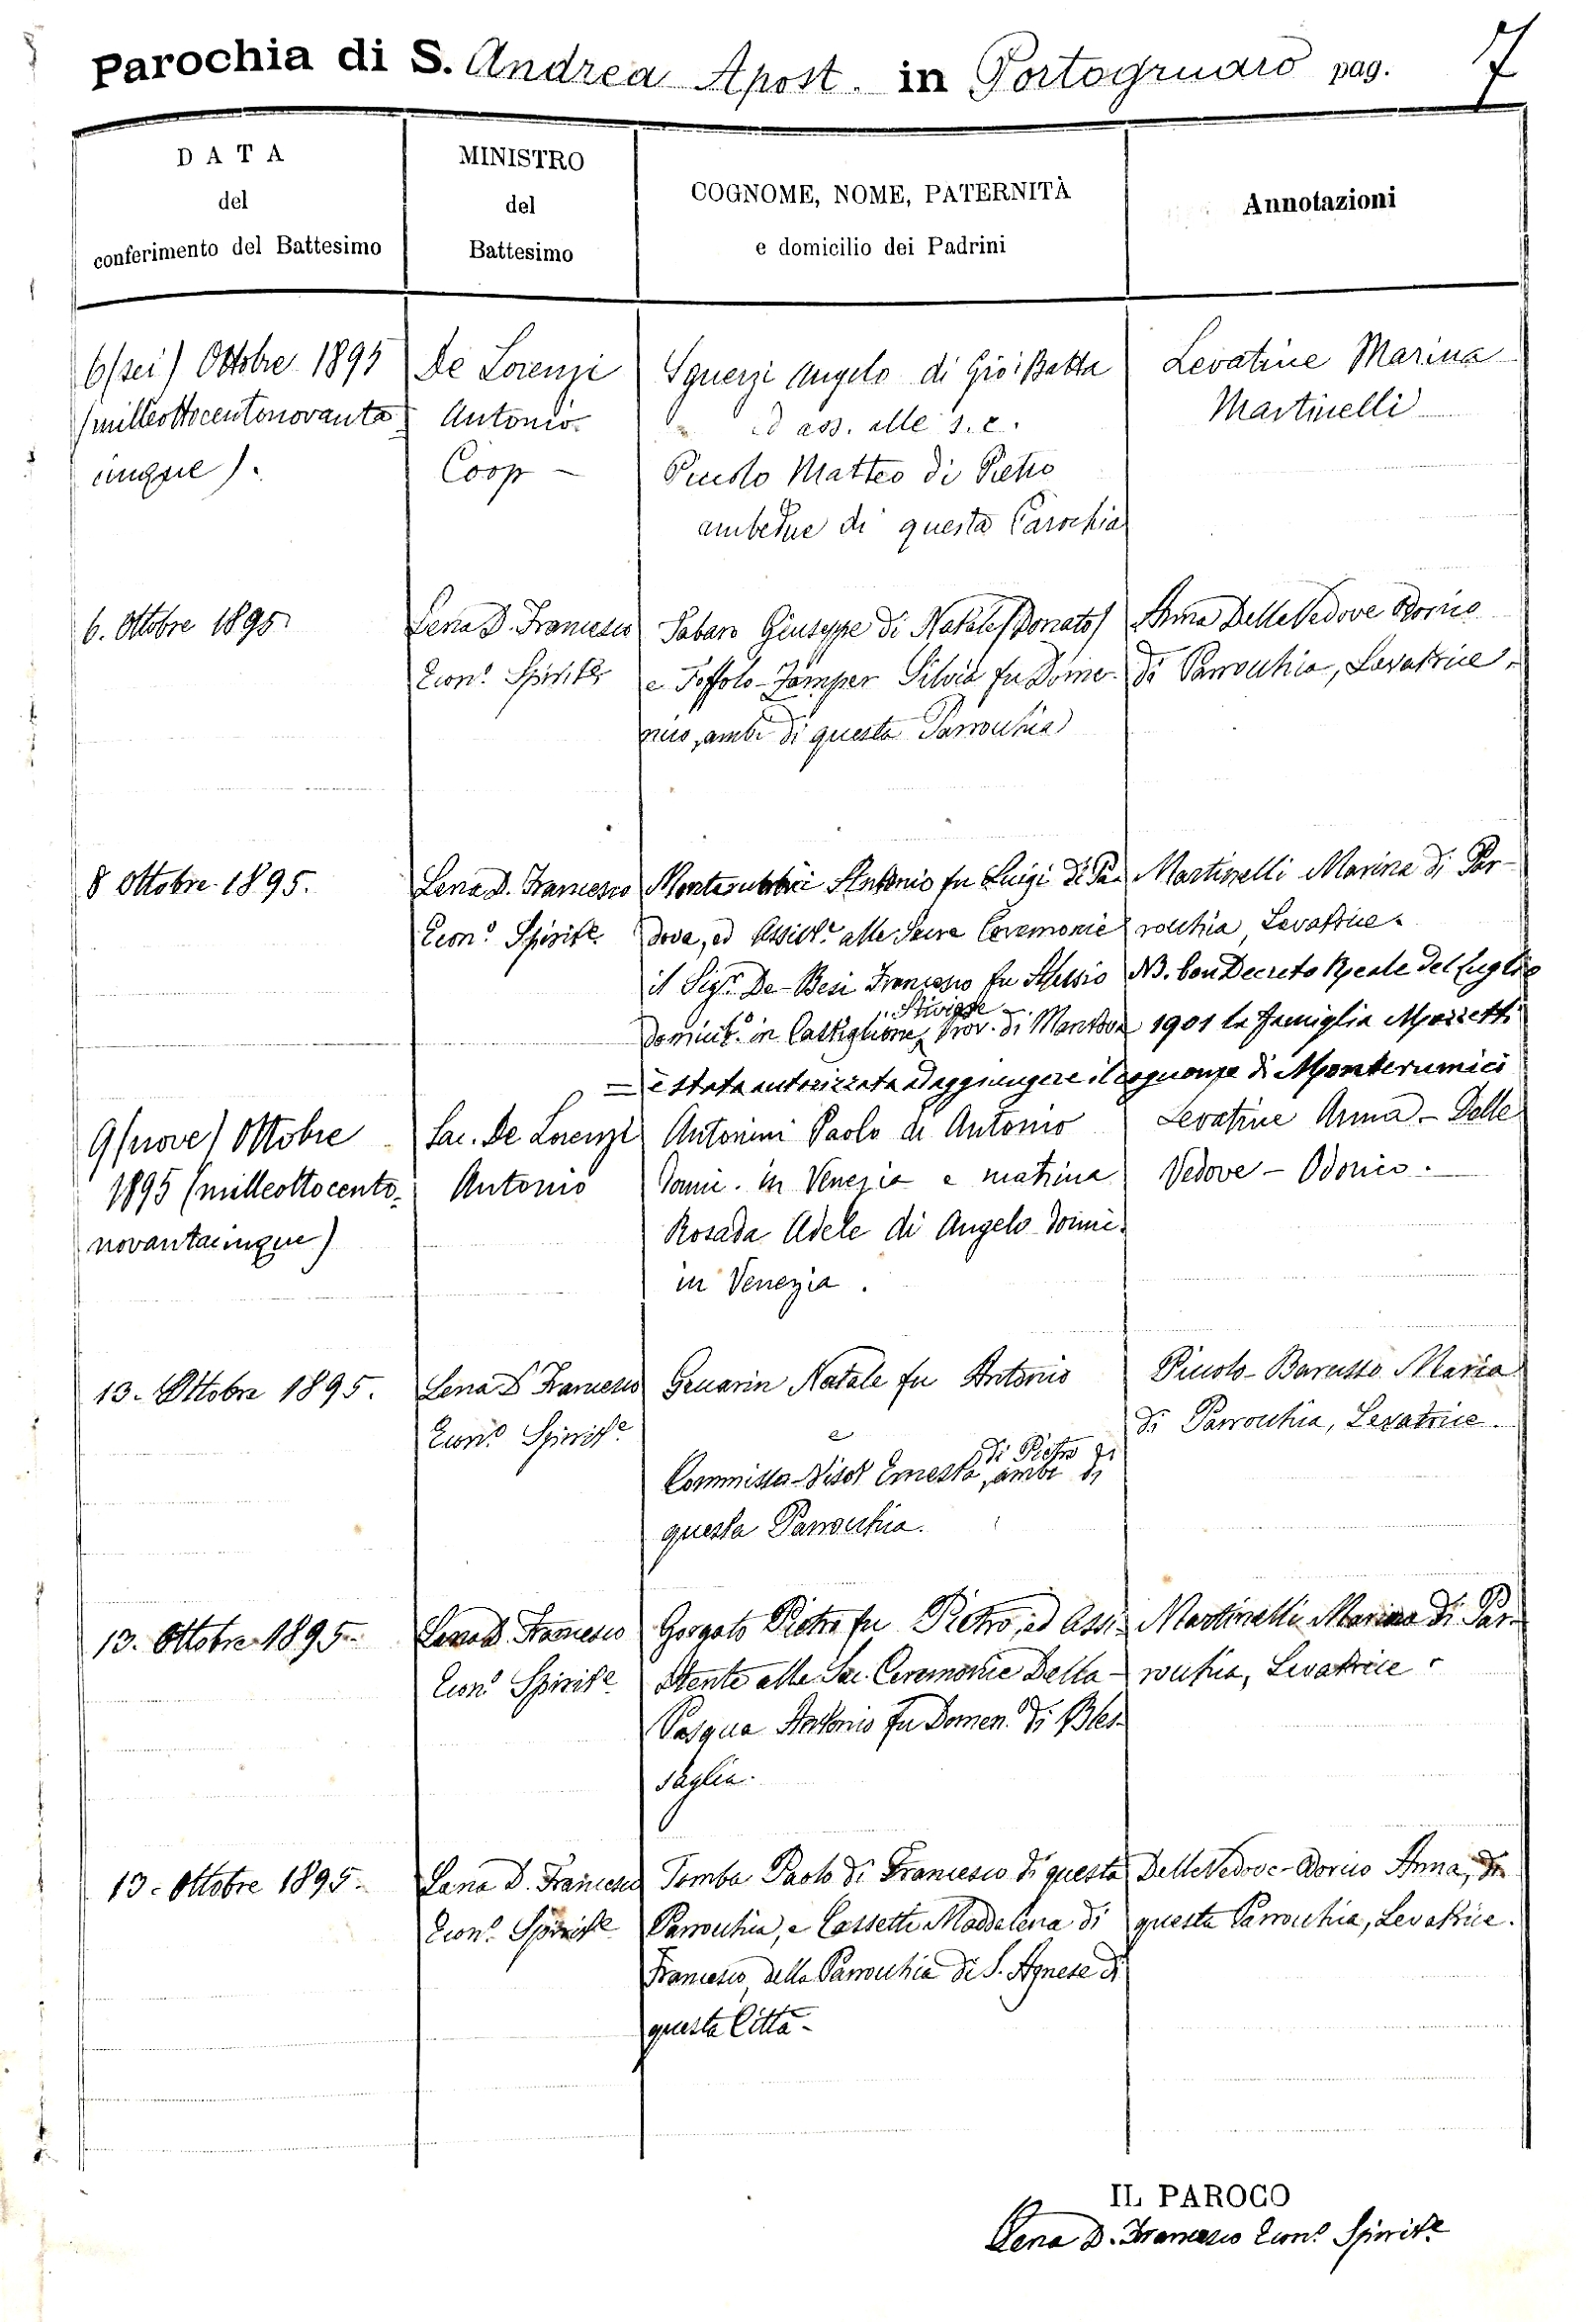 Parochia di S. Andrea Apost. in Portogruaro pag. 7
DATA
del
conferimento del Battesimo
MINISTRO
del
Battesimo
COGNOME, NOME, PATERNITÀ
e domicilio dei Padrini
Annotazioni
6 (sei) Ottobre 1895
(milleottocentonovanta
cinque).
De Lorenzi
Antonio
Coop -
Sguerzi Angelo di Gio: Batta
ed ass. alle s. c.
Piccolo Matteo di Pietro
ambedue di questa Parochia
Levatrice Marina
Martinelli
6. Ottobre 1895
Lena D. Francesco
Econ.o Spirit.e
Giuseppe di Natale (Donato)
e Toffolo-Zamper Silvia fu Dome-
nico, ambi di questa Parrocchia
Anna Delle Vedove Odorico
di Parrocchia, Levatrice.
8 Ottobre 1895.
Lena D. Francesco
Econ.o Spirit.e
Antonio fu Luigi di Pa-
dova, ed Assist.e alle Sacre Ceremonie
il Sig.r De-Besi Francesco fu Alessio
Stiviere
domicil.o in Castiglione, Prov. di Mantova
Martinelli Marina di Par-
rocchia, Levatrice.
NB. Con Decreto Reale del luglio
1901 la famiglia Mozzetti
= è stata autorizzata ad aggiungere il cognome di Monterumici
9 (nove) Ottobre
1895 (milleottocento-
novantacinque)
Sac. De Lorenzi
Antonio
Antonini Paolo di Antonio
domic. in Venezia e matrina
Rosada Adele di Angelo domic.
in Venezia.
Levatrice Anna - Delle
Vedove - Odorico.
13. Ottobre 1895.
Lena D. Francesco
Econ.o Spirit.e
Gruarin Natale fu Antonio
e
di Pietro
Commisso-Nisot Ernesta, ambi di
questa Parrocchia.
Piccolo-Barusso Maria
di Parrocchia, Levatrice.
13. Ottobre 1895.
Lena D. Francesco
Econ.o Spirit.e
Gorgato Pietro fu Pietro, ed Assi-
stente alle Sac. Ceremonie Della-
Pasqua Antonio fu Domen.o di Bles-
saglia.
Martinelli Marina di Par-
rocchia, Levatrice.
13. Ottobre 1895.
Lena D. Francesco
Econ.o Spirit.e
Tomba Paolo di Francesco di questa
Parrocchia, e Cassetti Maddalena di
Francesco, della Parrocchia di S. Agnese di
questa Città.
Delle Vedove-Odorico Anna, di
questa Parrocchia, Levatrice.
IL PAROCO
Lena D. Francesco Econ.o Spirit.e